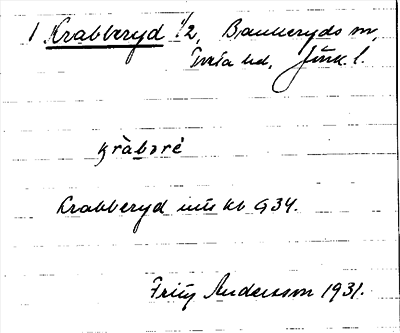 1 Krabberyd 1/2, Bankeryds sn,
Tveta hd, Jönk. l.
kràbəré
Krabberyd intill kb G34.
Fritz Andersson 1931.